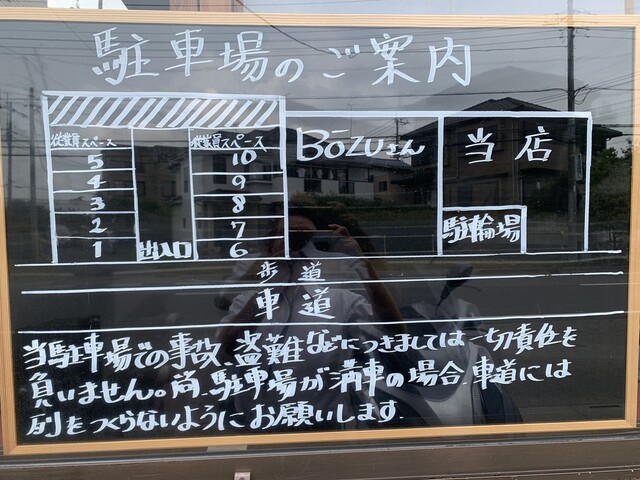 駐車場のご案内
従業員スペース
5
4
3
2
1
出入口
従業員スペース
10
9
8
7
6
BōZUさん
当店
駐輪場
歩道
車道
当駐車場での事故、盗難などにつきましては一切責任を
負いません。尚、駐車場が満車の場合、車道には
列をつくらないようにお願いします。